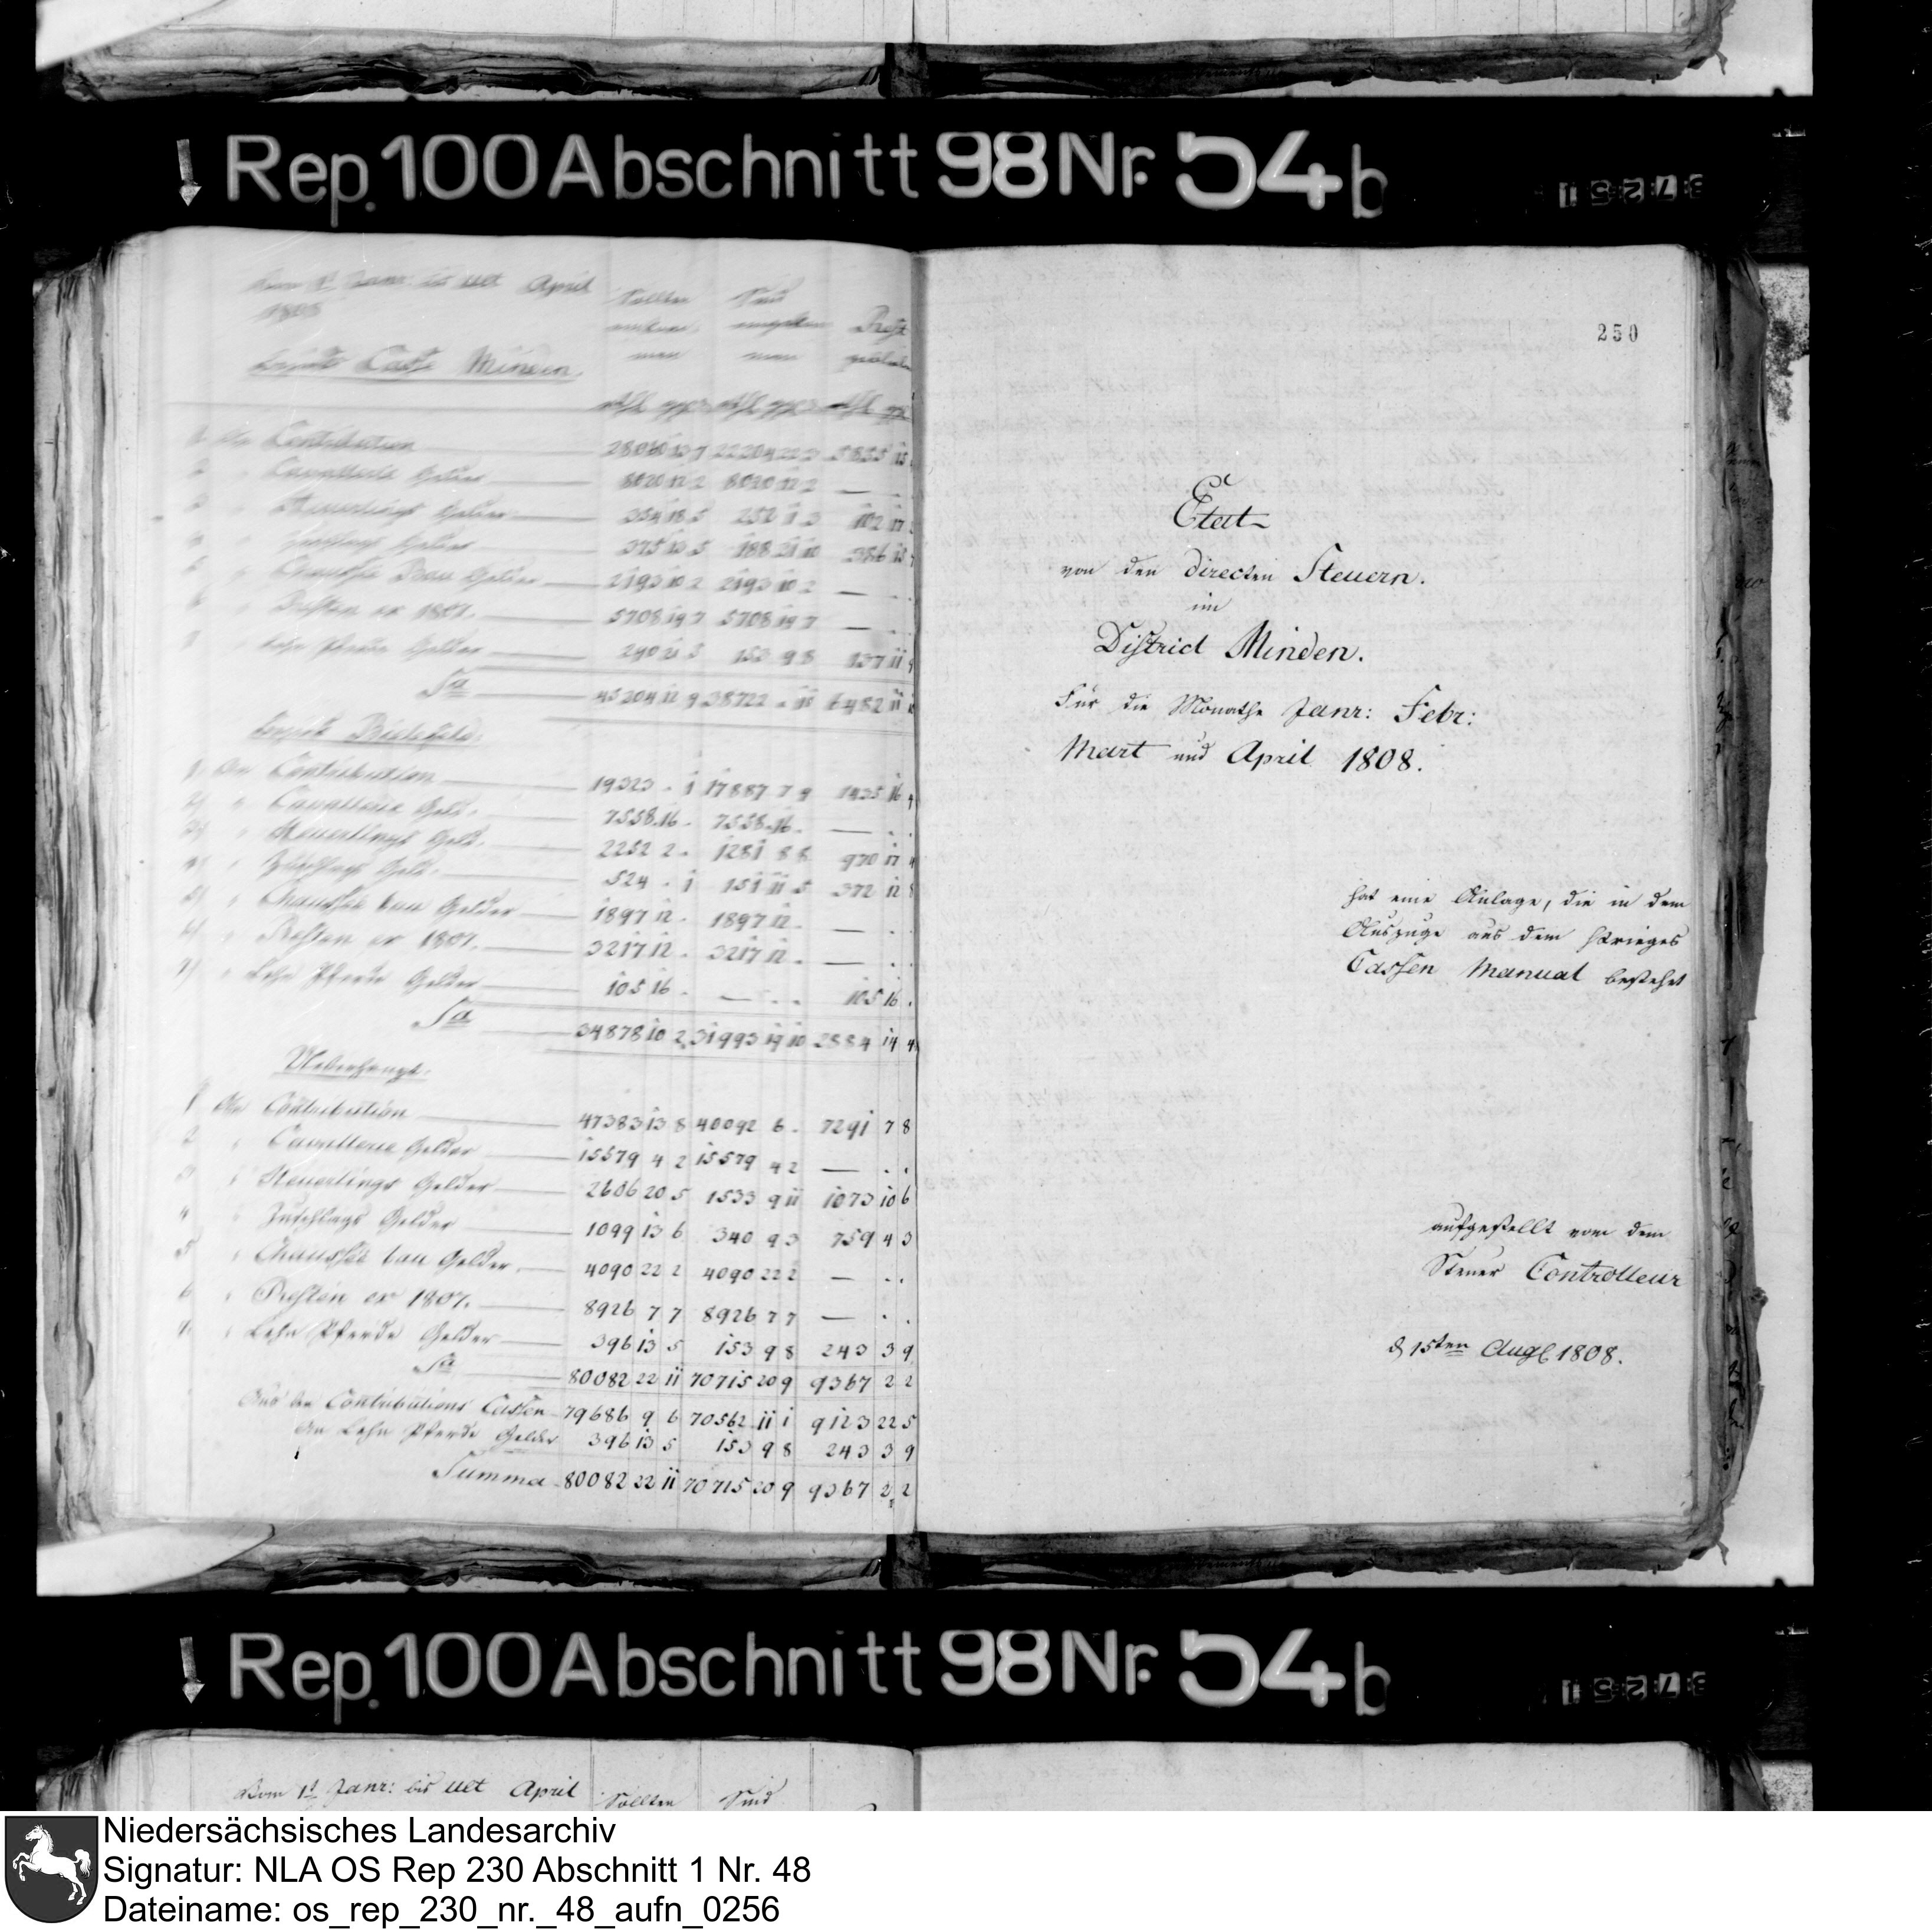 Rep. 100 Abschnitt 98 Nr. 54 b
37251
Vom 1t Janr: bis ult April
1808
Sollen einkommen
Sind eingekommen
Rest geblieben
Casse Minden.
1 An Contribution 28060 13 7 22204 22 3 5855 15
2 " Cavallerie Gelder 8020 12 2 8020 12 2 — . .
3 " Heuerlings Gelder 354 18 5 252 1 3 102 17
4 " Zuschlags Gelder 188 21 10 386 15
5 " Chaussée Bau Gelder 2193 10 2 2193 10 2 — . .
6 " Resten ex 1807. 5708 19 7 5708 19 7 — . .
7 " Lehn Pferde Gelder 290 21 5 153 9 8 137 11 9
Sa 45204 12 9 38722 . 11 6482 11
Bielefeld.
1 An Contribution 19323 . 1 17887 7 9 1435 16 4
2) " Cavallerie Geld. 7558 16 . 7558 16 . — . .
3) " Heuerlings Geld. 2252 2 . 1281 8 8 970 17 4
4) " Zuschlags Geld. 524 . 1 151 11 5 372 12 8
5) " Chaussée bau Gelder 1897 12 . 1897 12 . — . .
6) " Resten ex 1807. 3217 12 . 3217 12 . — . .
7) " Lehn Pferde Gelder 105 16 . — . . 105 16 .
Sa 34878 10 2 31993 19 10 2884 14 4
Ueberhaupt.
1 An Contribution 47383 13 8 40092 6 . 7291 7 8
2 " Cavallerie Gelder 15579 4 2 15579 4 2 — . .
3 " Heuerlings Gelder 2606 20 5 1533 9 11 1073 10 6
4 " Zuschlags Gelder 1099 13 6 340 9 3 759 4 3
5 " Chaussée bau Gelder. 4090 22 2 4090 22 2 — . .
6 " Resten ex 1807. 8926 7 7 8926 7 7 — . .
7. " Lehn Pferde Gelder 396 13 5 153 9 8 243 3 9
Sa 80082 22 11 70715 20 9 9367 2 2
Aus den Contributions Cassen 79686 9 6 70562 11 1 9123 22 5
An Lehn Pferde Gelder 396 13 5 153 9 8 243 3 9
Summa 80082 22 11 70715 20 9 9367 2 2
250
Etat
von den directen Steuern.
im
District Minden.
Für die Monathe Janr: Febr:
Mart und April 1808.
hat eine Anlage, die in dem
Auszuge aus dem Krieges
Cassen Manual bestehet
aufgestellt von dem
Steuer Controlleur
d 15ten Augt 1808.
Rep. 100 Abschnitt 98 Nr. 54 b
37251
Vom 1t Janr: bis ult April
Sollen
Sind
Niedersächsisches Landesarchiv
Signatur: NLA OS Rep 230 Abschnitt 1 Nr. 48
Dateiname: os_rep_230_nr._48_aufn_0256